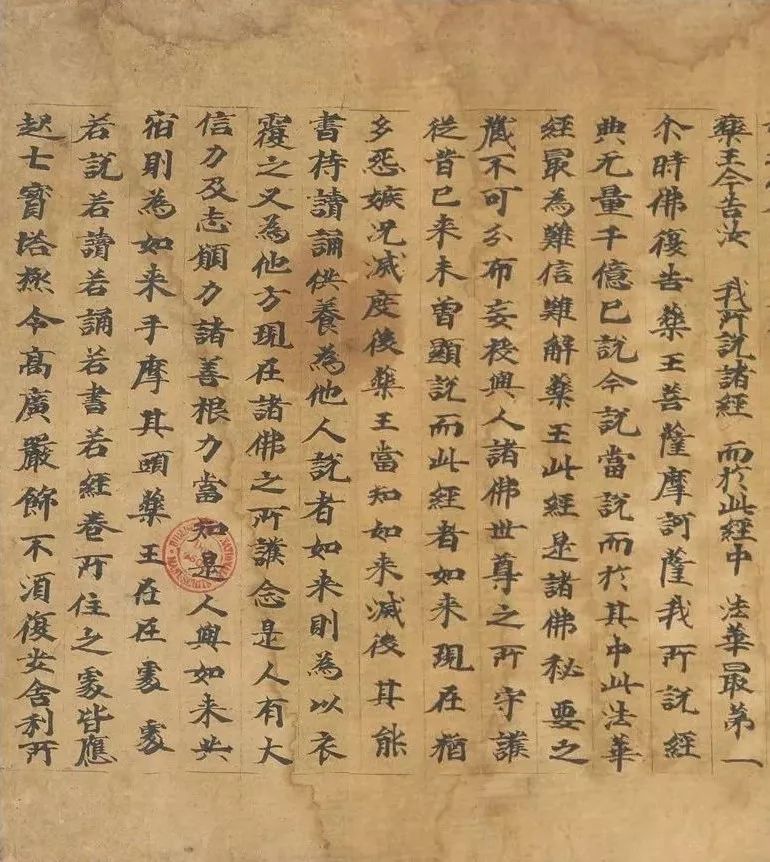 藥王今告汝 我所說諸經 而於此經中 法華最第一
尒時佛復告藥王菩薩摩訶薩我所說經
典无量千億已說今說當說而於其中此法華
經最為難信難解藥王此經是諸佛秘要之
藏不可分布妄授與人諸佛世尊之所守護
從昔已來未曾顯說而此經者如來現在猶
多怨嫉况滅度後藥王當知如來滅後其能
書持讀誦供養為他人說者如來則為以衣
覆之又為他方現在諸佛之所護念是人有大
信力及志願力諸善根力當知是人與如來共
宿則為如來手摩其頭藥王在在處處
若說若讀若誦若書若經卷所住之處皆應
起七寶塔極令高廣嚴飾不須復安舍利所